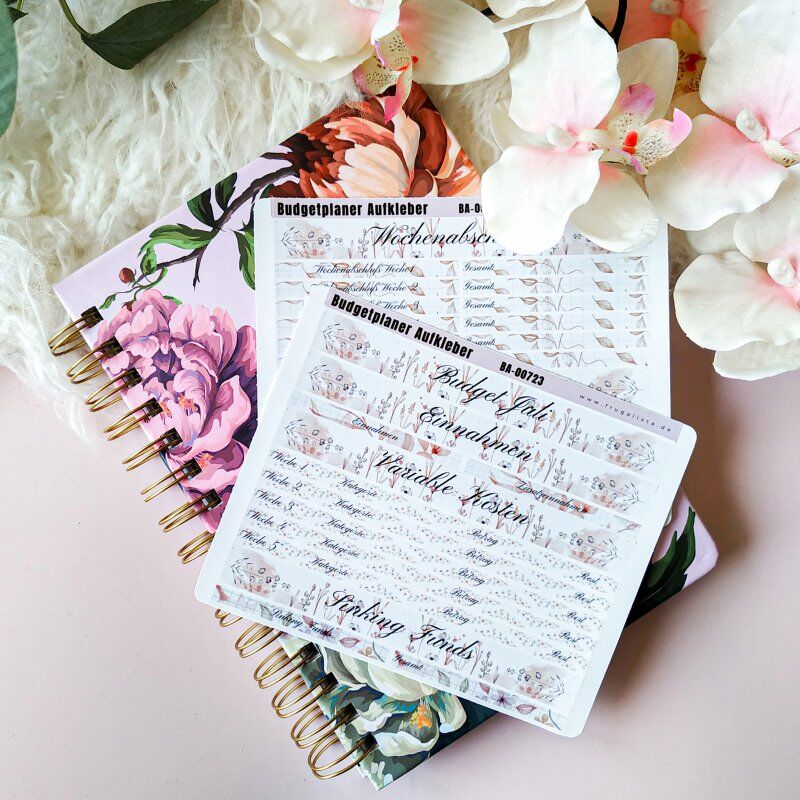 Budgetplaner Aufkleber BA-0
Wochenabsch
Wochenabschluß Woche 1 Gesamt
Wochenabschluß Woche 2 Gesamt
Woche 3 Gesamt
Gesamt
Gesamt
Budgetplaner Aufkleber BA-00723
www.frugalista.de
Budget Juli
Einnahmen
Einnahmen Gesamteinnahmen
Variable Kosten
Woche 1 Kategorie Betrag Rest
Woche 2 Kategorie Betrag Rest
Woche 3 Kategorie Betrag Rest
Woche 4 Kategorie Betrag Rest
Woche 5 Kategorie Betrag Rest
Sinking Funds
Sinking Funds Gesamt